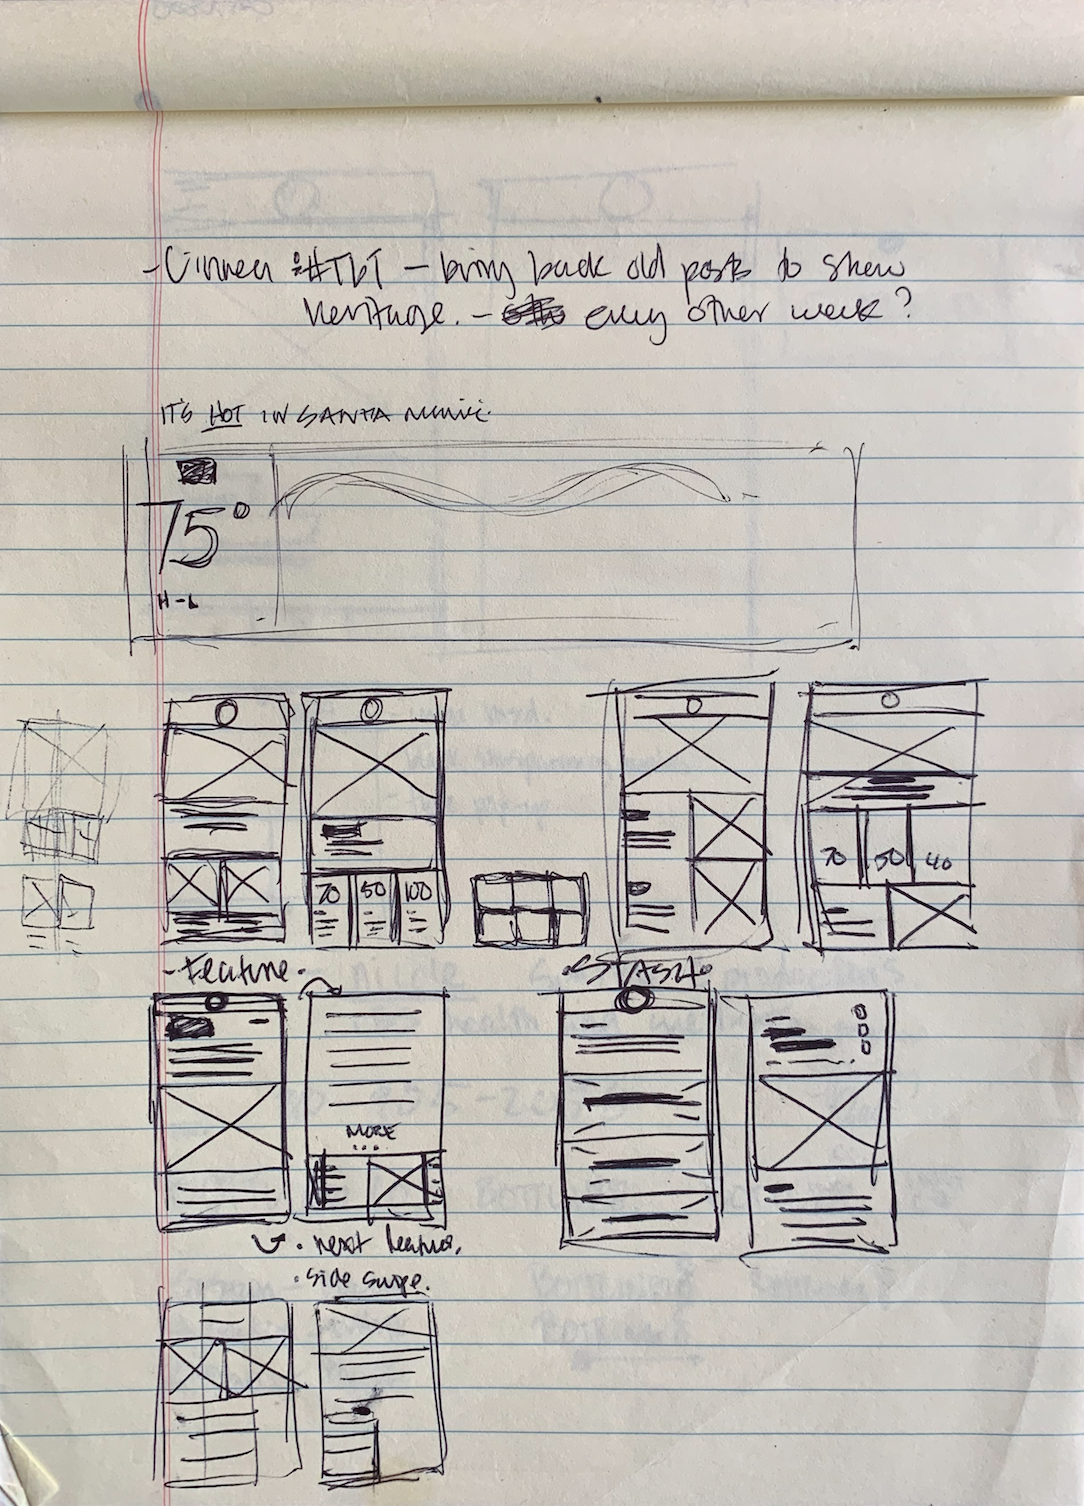 #TbT — bring back old posts to show
heritage. — every other week?
IT'S HOT IN SANTA MONICA.
75°
H - L
70 50 100
70 50 40
- Feature.
. STASH.
MORE
...
. next feature.
. side swipe.